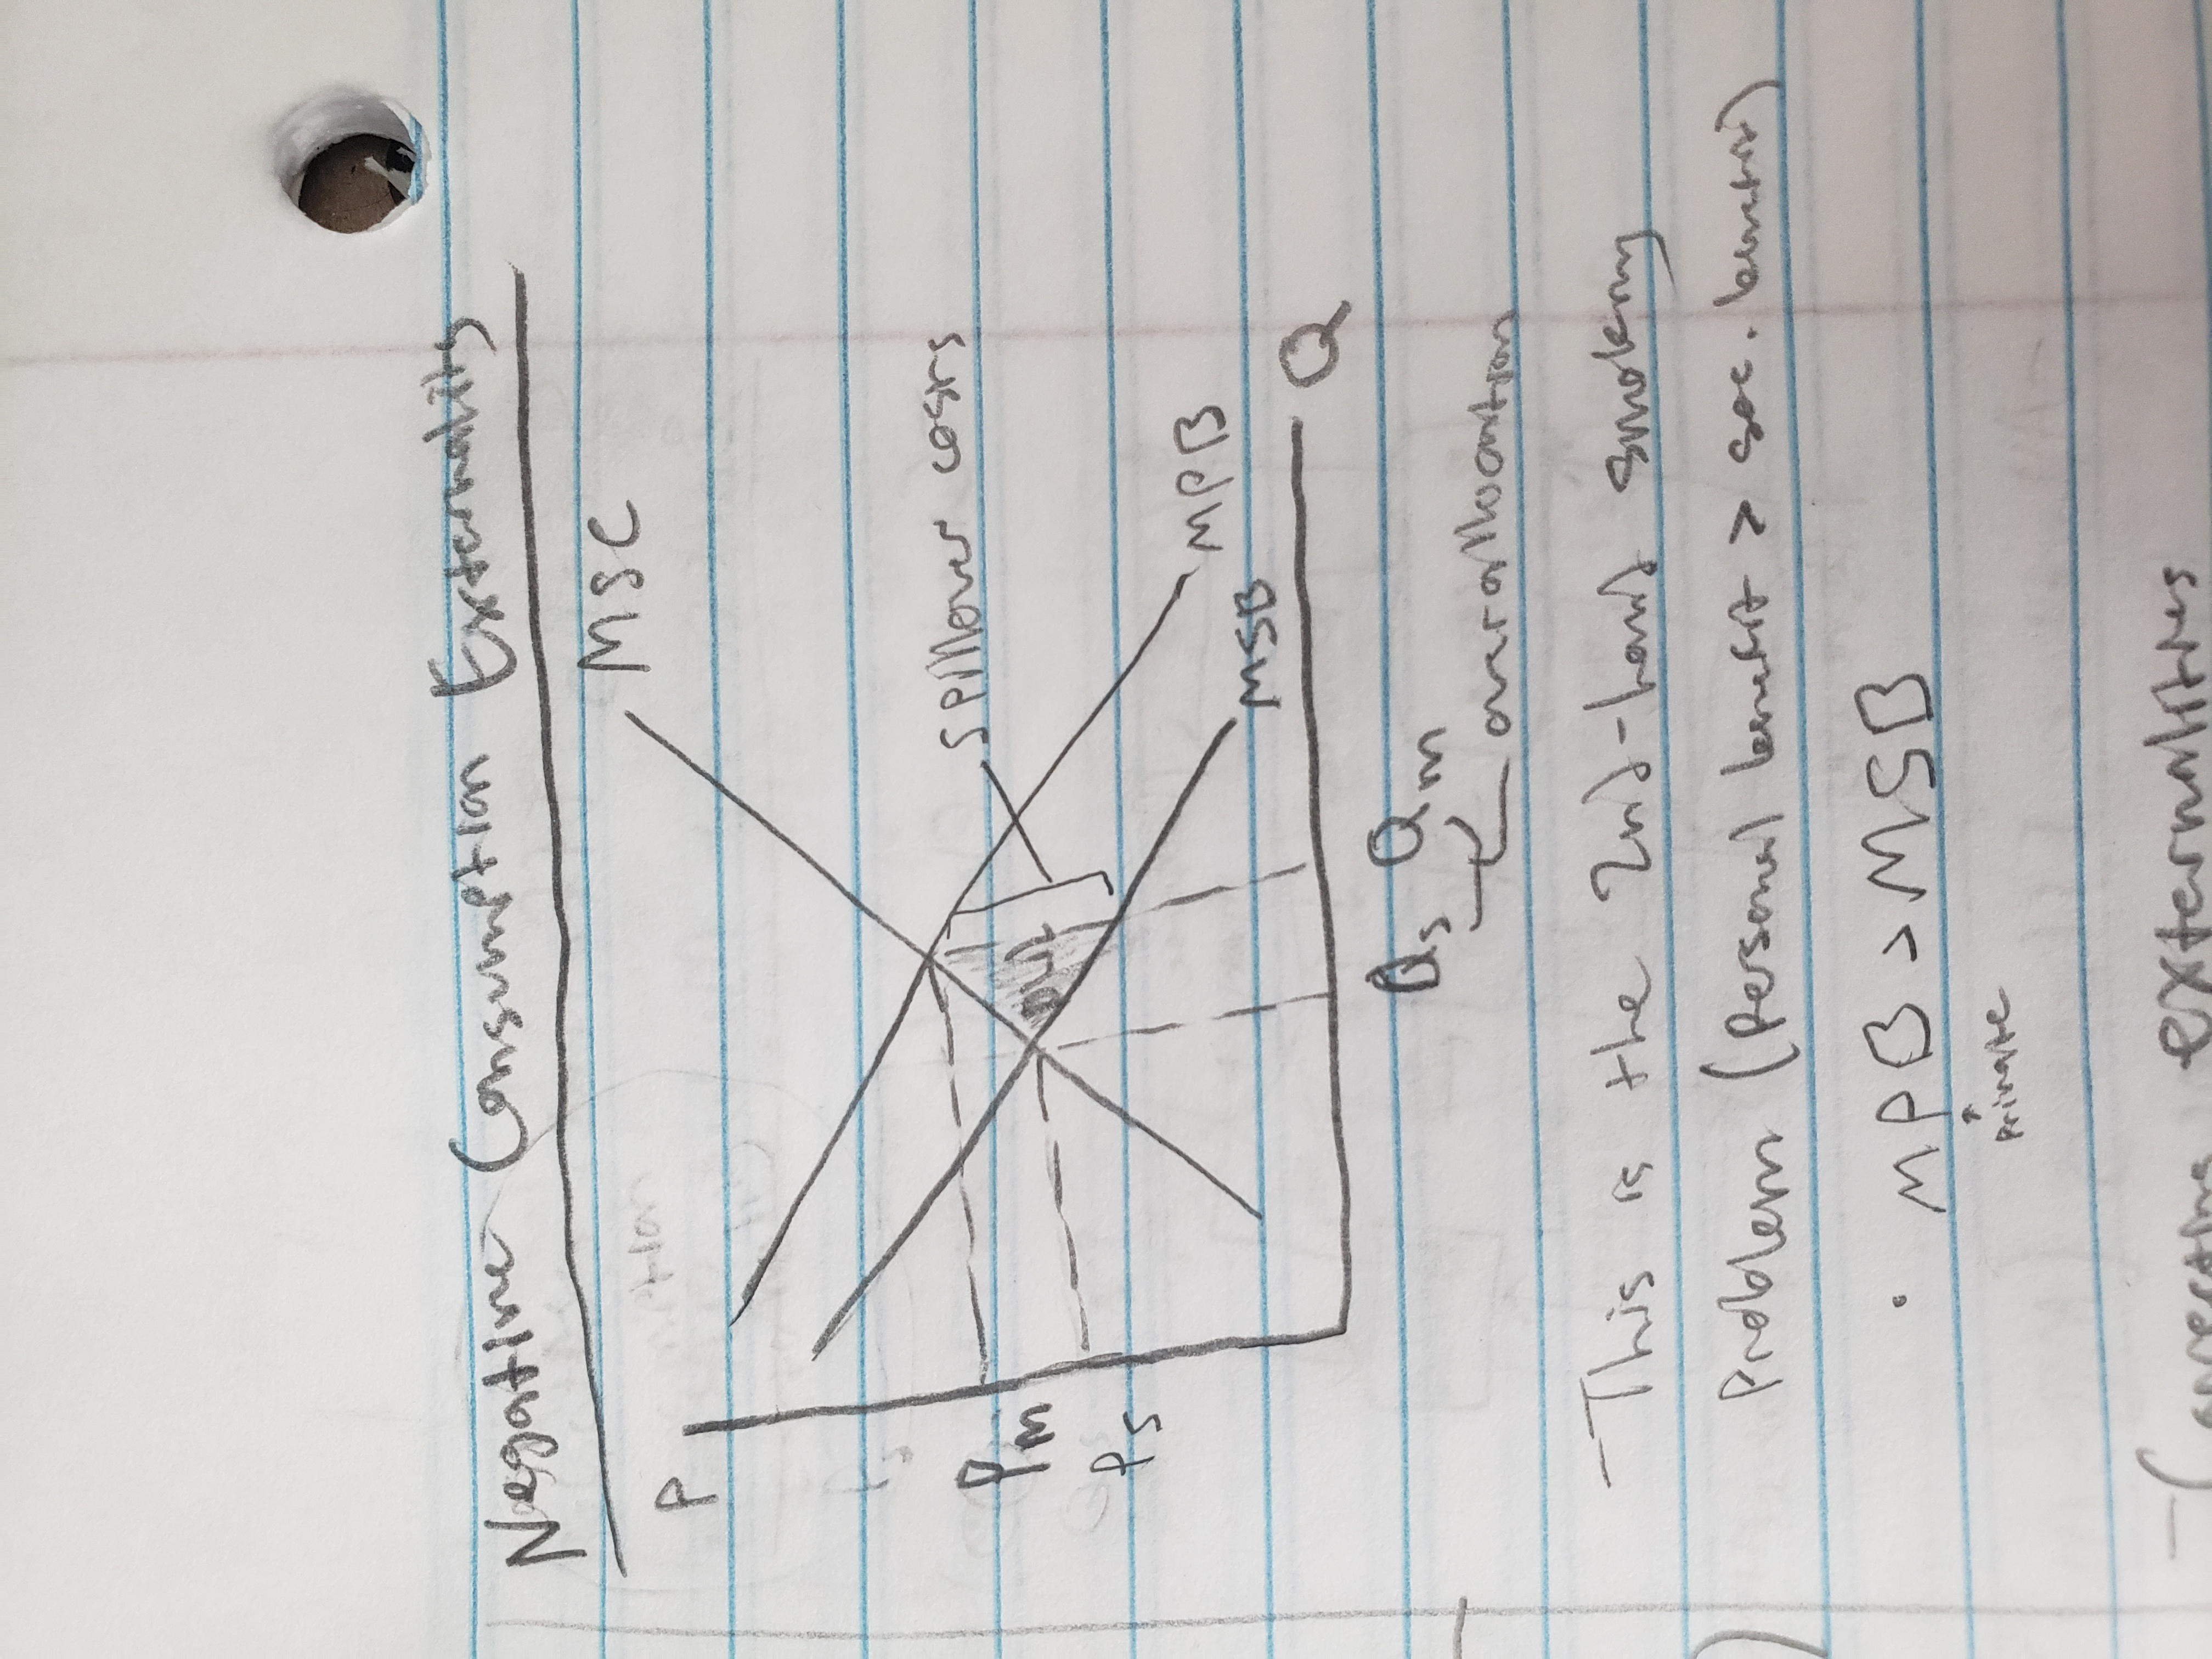 Negative Consumption Externality
P
MSC
Pm
Ps
DWL
spillover costs
MPB
MSB
Q
Qs Qm
overallocation
-This is the 2nd-hand smoking
Problem (personal benefit > soc. benefit)
• MPB > MSB
private
-Correcting externalities